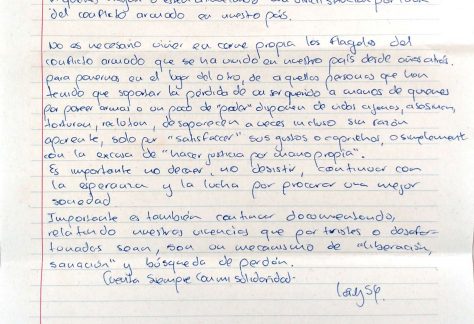 del conflicto armado en nuestro país.
No es necesario vivir en carne propia los flagelos del
conflicto armado que se ha vivido en nuestro país desde años atrás.
para ponernos en el lugar del otro, de aquellas personas que han
tenido que soportar la pérdida de un ser querido a manos de quienes
por poseer armas o un poco de "poder" disponen de vidas ajenas, asesinan,
torturan, reclutan, desaparecen a veces incluso sin razón
aparente, solo por "satisfaccer" sus gustos o caprichos, o simplemente
con la excusa de "hacer justicia por mano propia".
Es importante no decaer, no desistir, continuar con
la esperanza y la lucha por procurar una mejor
sociedad
Importante es también continuar documentando,
relatando nuestras vivencias que por tristes o desafor-
tunadas sean, son un mecanismo de "liberación,
sanación" y búsqueda de perdón.
Cuenta siempre con mi solidaridad.